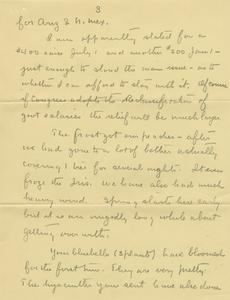 3
for Ariz & N. Mex.
I am apparently slated for a
2400 since July 1 and another 300 Jan 1 –
just enough to cloud the main issue – as to
whether I can afford to stay with it. Of course
if Congress adopts the Reclassification of
govt salaries the relief will be much larger
The frost got our peaches – after
we had gone to a lot of bother actually
covering 1 tree for several nights. It even
froze the Iris. We have also had much
heavy wind. Spring starts here early
but it is an ungodly long while about
getting over with.
Your bluebells (3 plants) have bloomed
for the first time. They are very pretty.
The hyacinths you sent have also done